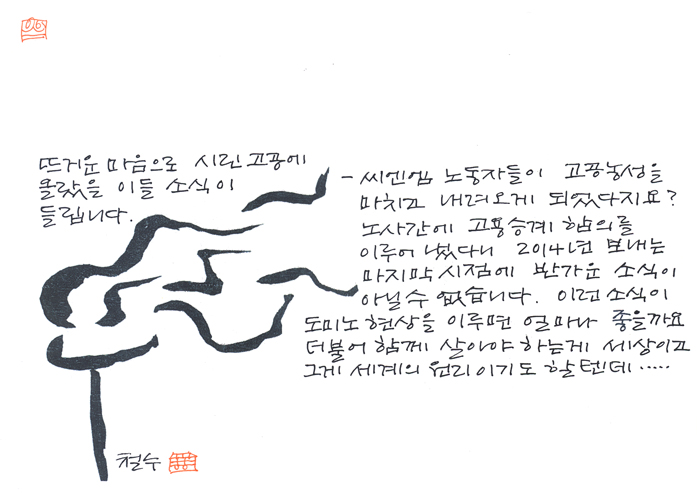 뜨거운 마음으로 시린 고공에
올랐을 이들 소식이
들립니다.
- 씨엔엠 노동자들이 고공농성을
마치고 내려오게 되었다지요?
노사간에 고용승계 합의를
이루어 냈다니 2014년 보내는
마지막 시점에 반가운 소식이
아닐 수 없습니다. 이런 소식이
도미노 현상을 이루면 얼마나 좋을까요
더불어 함께 살아야 하는게 세상이고
그게 세계의 원리이기도 할텐데.....
철수